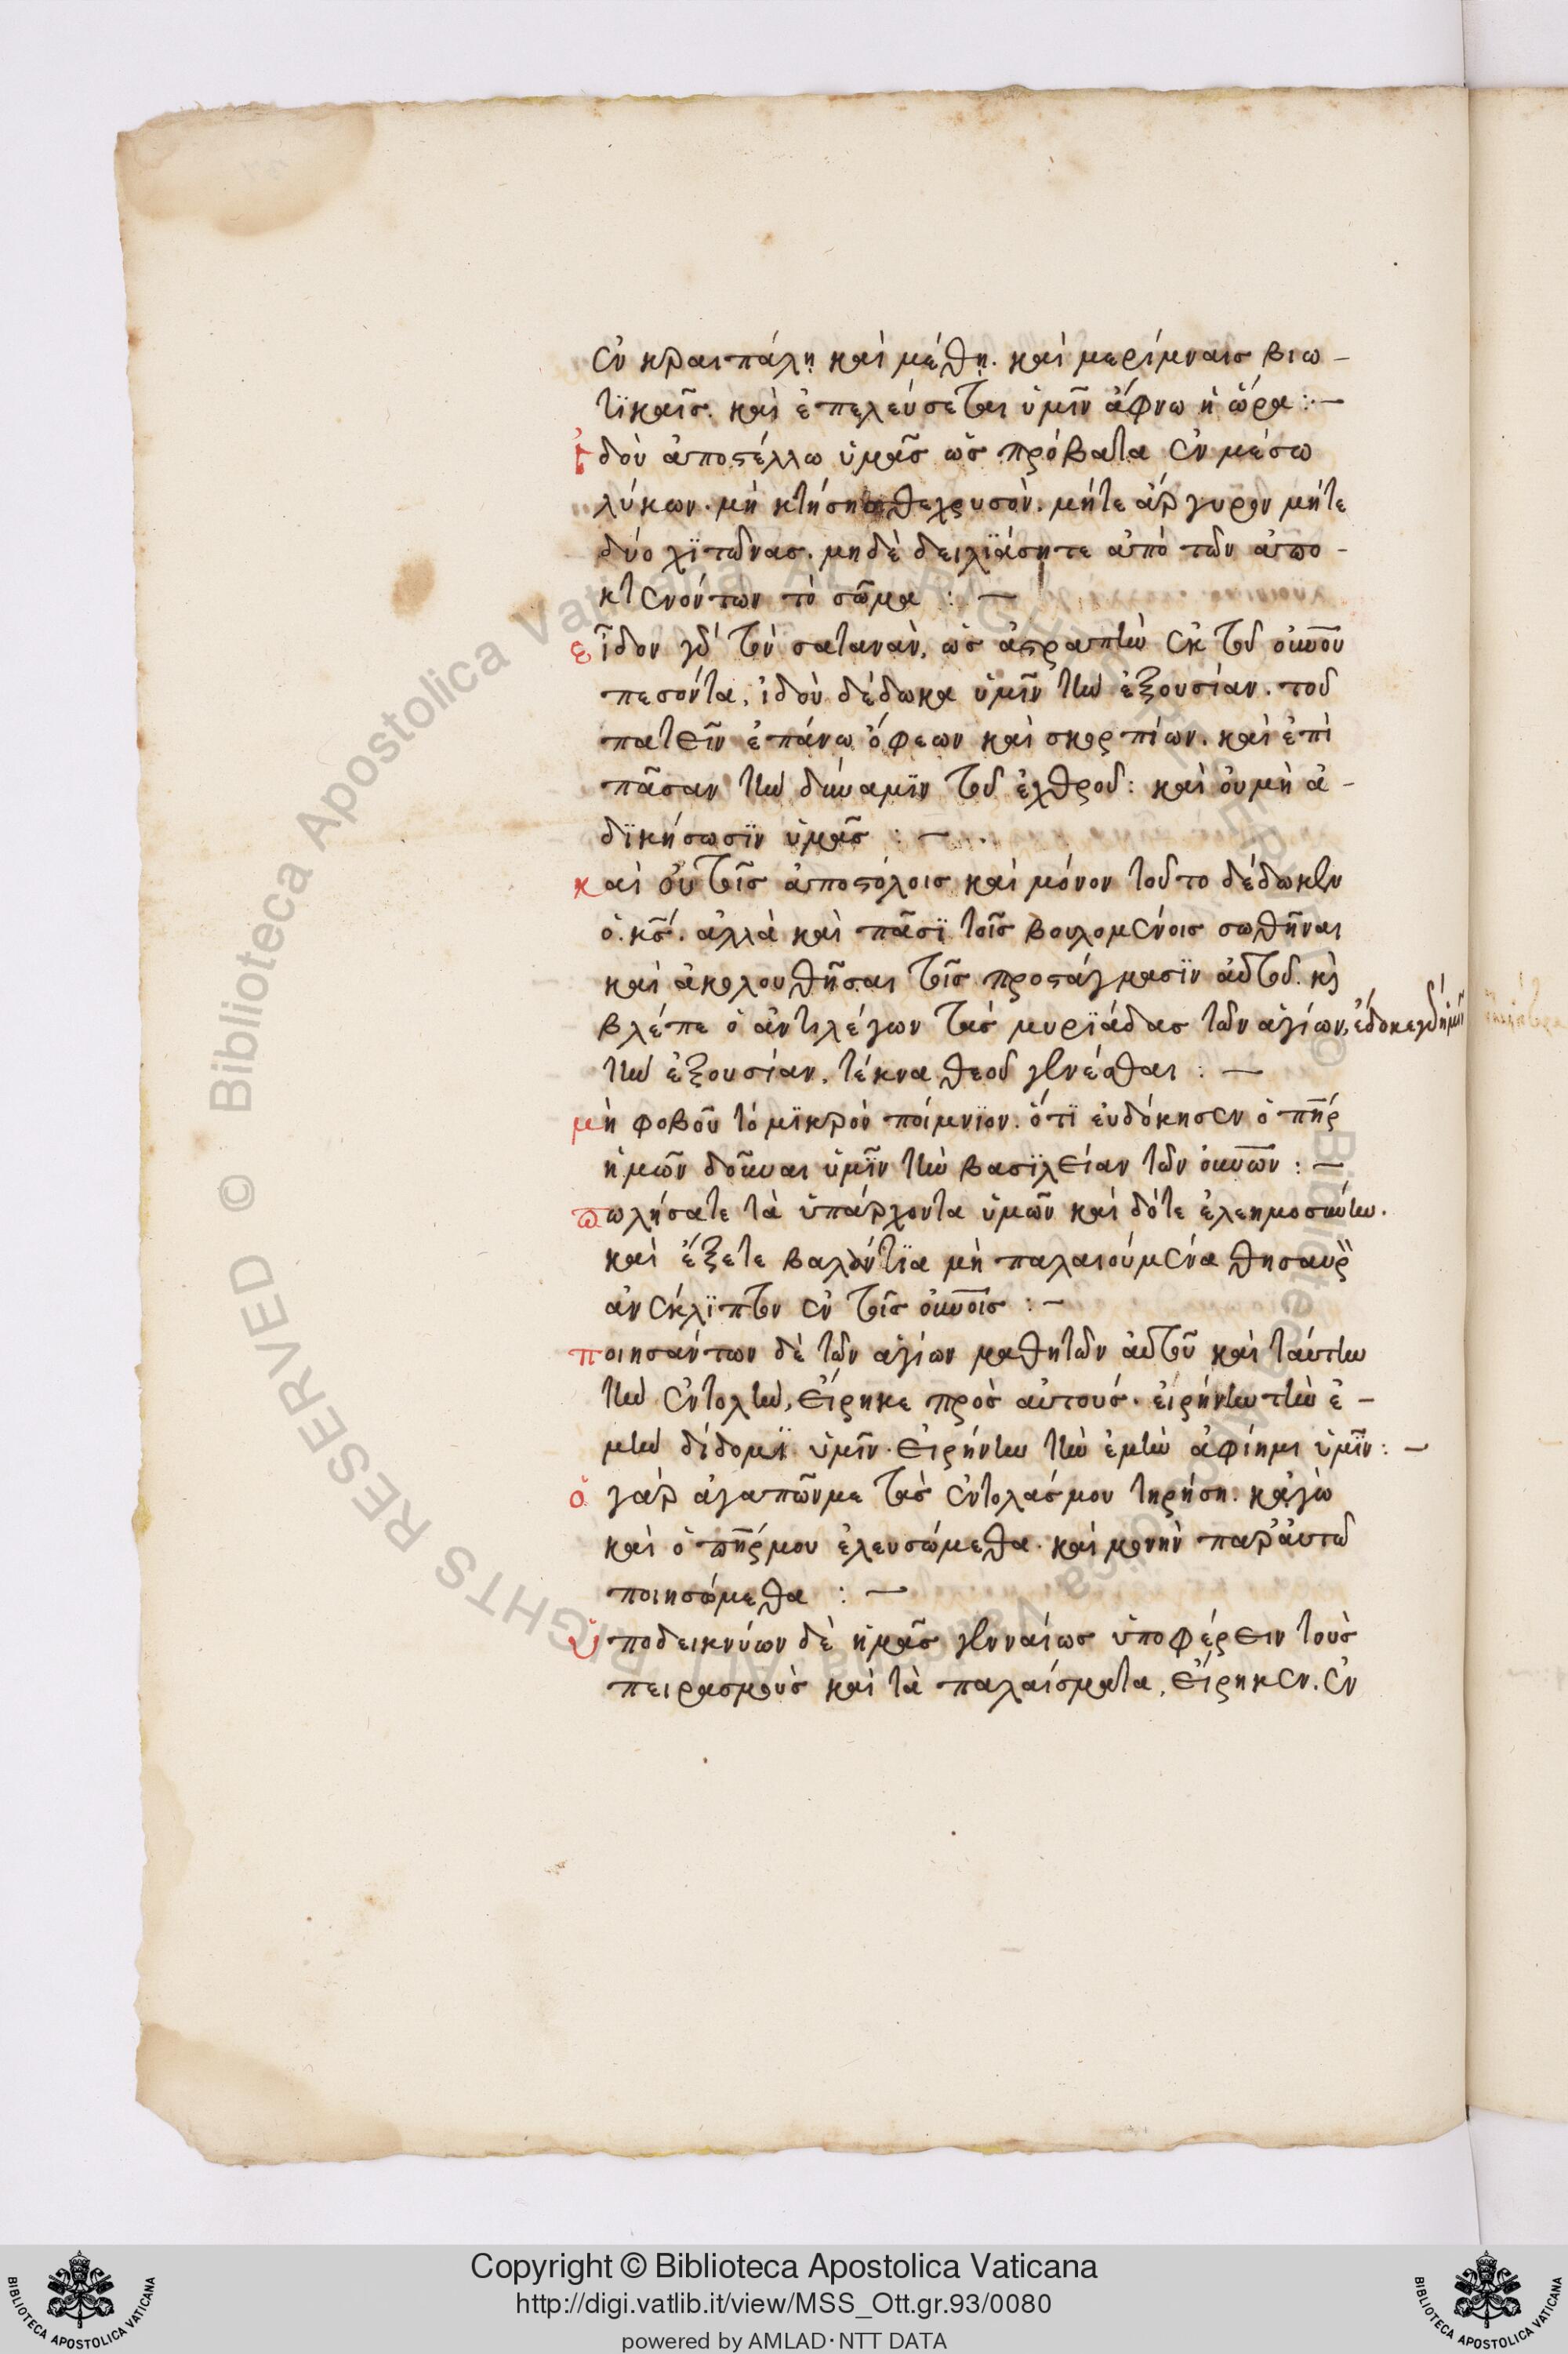 ἐν κραιπάλη καὶ μέθη. καὶ μερίμναις βιω-
τϊκαῖς. καὶ ἐπελεύσεται ὑμῖν ἄφνω ἡ ὥρα :—
ἰδοὺ ἀποστέλλω ὑμᾶς ὡς πρόβατα ἐν μέσω
λύκων. μὴ κτήσησθε χρυσὸν. μήτε ἄργυρον μήτε
δύο χϊτῶνας. μηδὲ δειλϊάσητε ἀπὸ τῶν ἀπο-
κτενόντων τὸ σῶμα : —
εἶδον γὰρ τὸν σατανὰν, ὡς ἀστραπὴν ἐκ τοῦ οὐνοῦ
πεσόντα, ἰδοὺ δέδωκα ὑμῖν τὴν ἐξουσίαν. τοῦ
πατεῖν ἐπάνω ὄφεων καὶ σκορπίων. καὶ ἐπὶ
πᾶσαν τὴν δύναμϊν τοῦ ἐχθροῦ : καὶ οὐ μὴ ἀ-
δϊκήσωσϊν ὑμᾶς : —
καὶ οὐ τοῖς ἀποστόλοις καὶ μόνον τοῦτο δέδωκεν
ὁ κς. ἀλλὰ καὶ πᾶσϊ τοῖς βουλομένοις σωθῆναι
καὶ ἀκολουθῆσαι τοῖς προστάγμασϊν αὐτοῦ. κὶ
βλέπε ὁ ἀντιλέγων τὰς μυρϊάδας τῶν ἁγίων, ἔδωκε γὰρ ἡμῖν
τὴν ἐξουσίαν, τέκνα θεοῦ γενέσθαι : —
μὴ φοβοῦ τὸ μϊκρὸν ποίμνϊον. ὅτϊ εὐδόκησεν ὁ πηρ
ἡμῶν δοῦναι ὑμῖν τὴν βασϊλείαν τῶν οὐνῶν : —
πωλήσατε τὰ ὑπάρχοντα ὑμῶν καὶ δότε ἐλεημοσύνην.
καὶ ἕξετε βαλάντϊα μὴ παλαιούμενα θησαυρ
ἀνέκλϊπτον ἐν τοῖς οὐνοῖς : —
ποιησάντων δὲ τῶν ἁγίων μαθητῶν αὐτοῦ καὶ ταύτην
τὴν ἐντολὴν, εἴρηκε πρὸς αὐτούς. εἰρήνην τὴν ἐ-
μὴν δίδομϊ ὑμῖν. εἰρήνην τὴν ἐμὴν ἀφίημι ὑμῖν : —
ὁ γὰρ ἀγαπῶν με τὰς ἐντολάς μου τηρήση. κἀγὼ
καὶ ὁ πηρ μου ἐλευσώμεθα. καὶ μονὴν παρ' αὐτῶ
ποιησώμεθα : —
ὑποδεικνύων δὲ ἡμᾶς γενναίως ὑποφέρειν τοὺς
πειρασμοὺς καὶ τὰ παλαίσματα, εἴρηκεν. ἐν
Copyright © Biblioteca Apostolica Vaticana
http://digi.vatlib.it/view/MSS_Ott.gr.93/0080
powered by AMLAD·NTT DATA